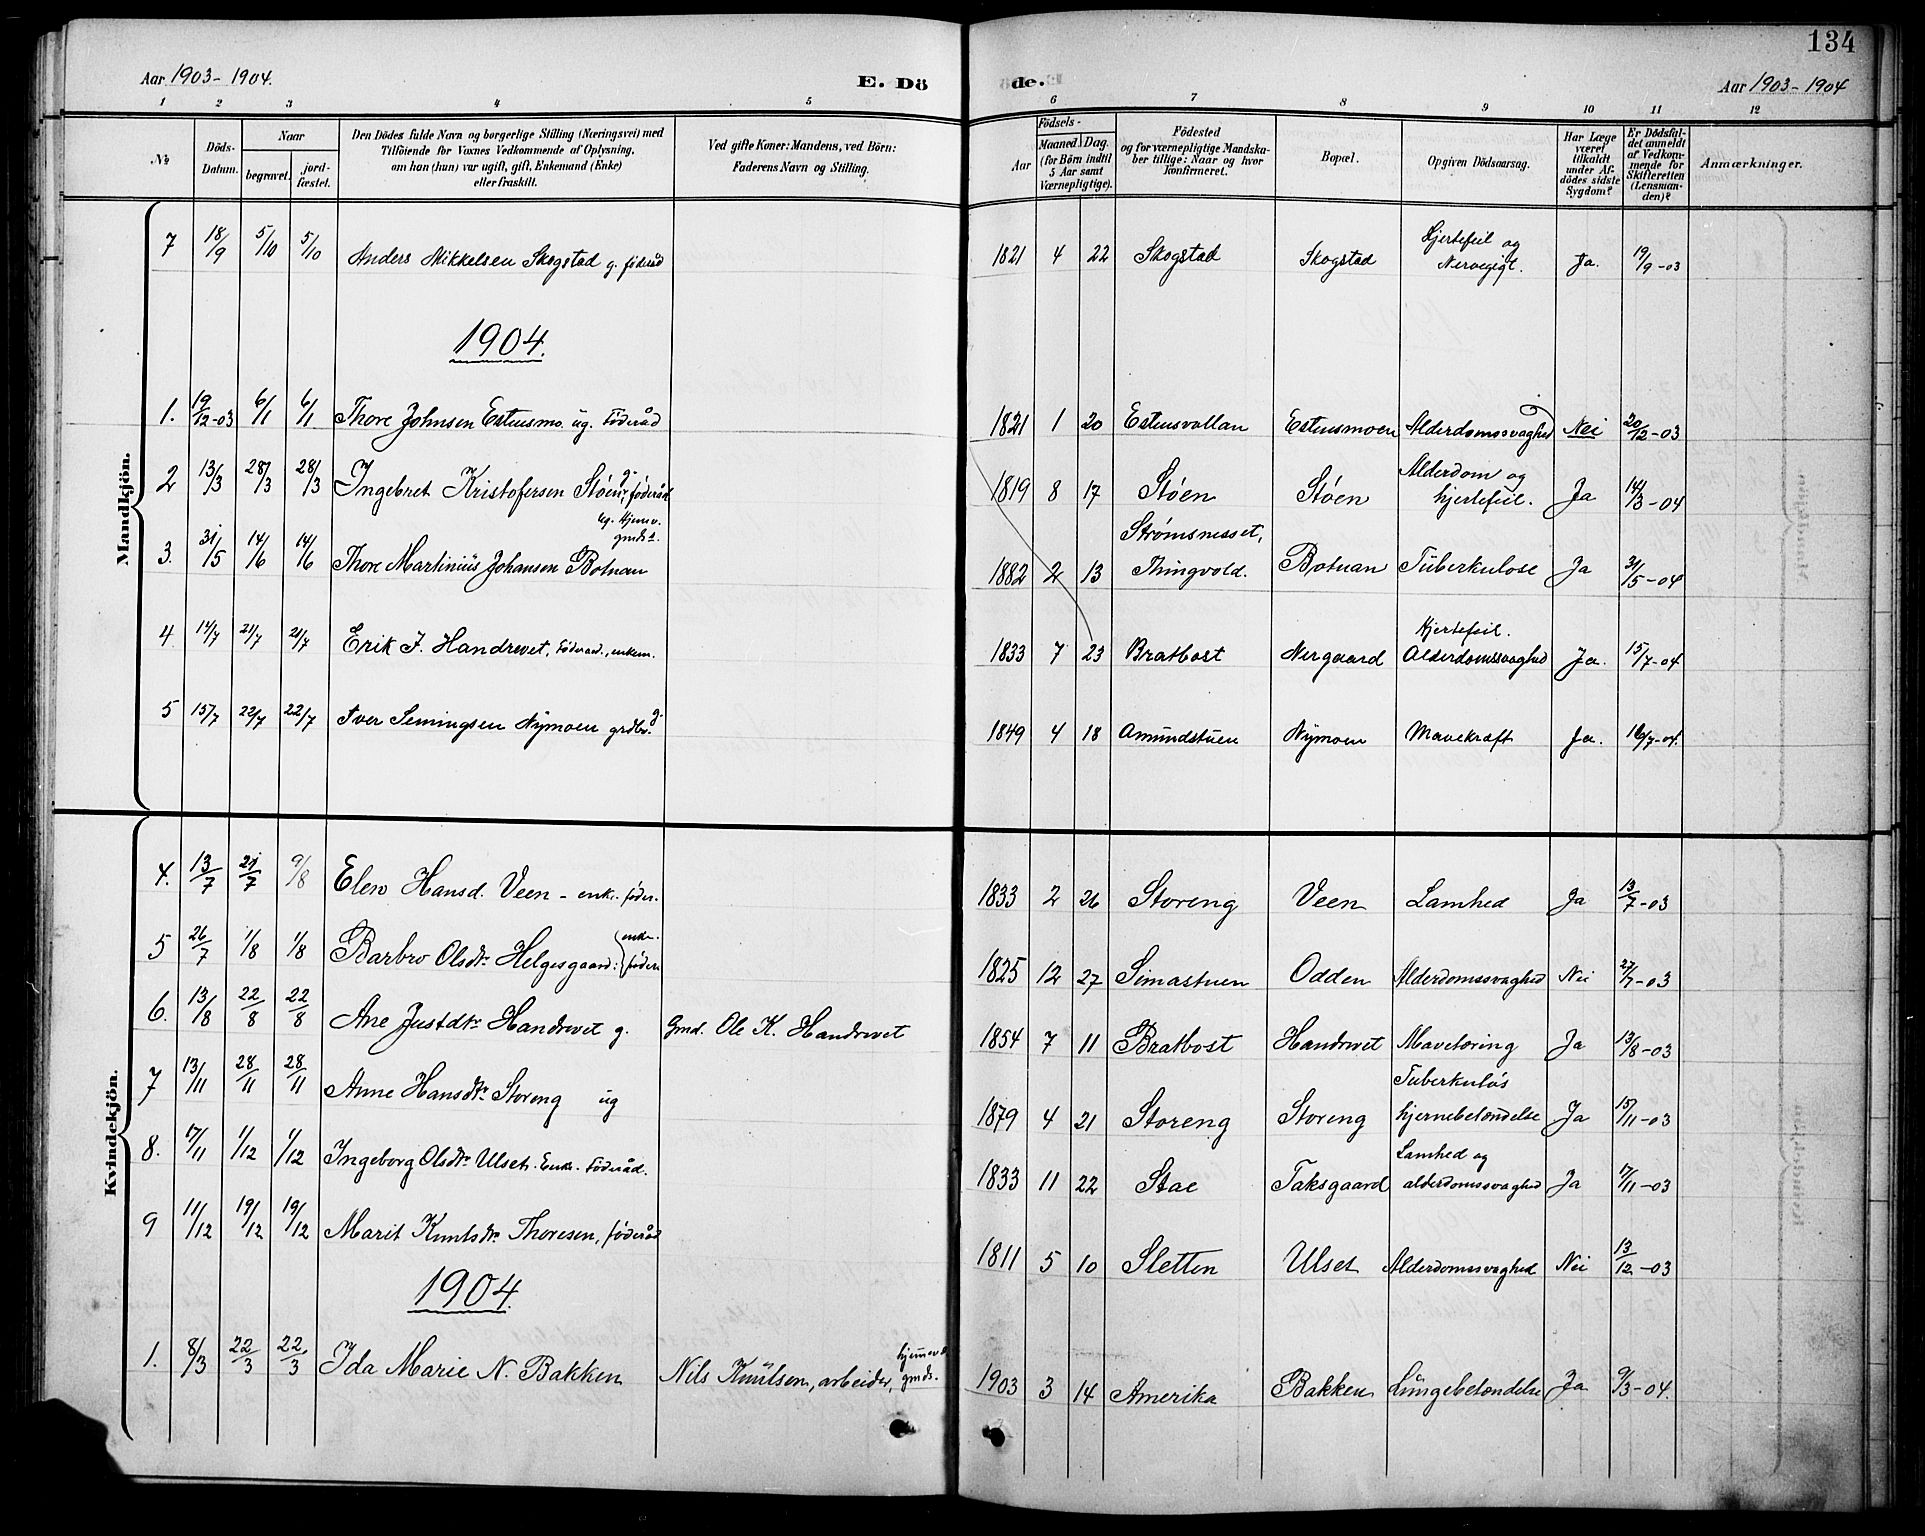 134
Aar 1903-1904. E. Dö de. Aar 1903-1904
1 2 3 4 5 6 7 8 9 10 11 12
No
Döds-Datum.
Naar
begravet.
jord-fæstet.
Den Dödes fulde Navn og borgerlige Stilling (Næringsvei) med
Tilföiende for Voxnes Vedkommende af Oplysning,
om han (hun) var ugift, gift, Enkemand (Enke)
eller fraskilt.
Ved gifte Koner: Mandens, ved Börn:
Faderens Navn og Stilling.
Födsels-
Aar
Maaned. Dag.
(for Börn indtil
5 Aar samt
Værnepligtige).
Födested
og for værnepligtige Mandska-
ber tillige: Naar og hvor
konfirmeret.
Bopæl.
Opgiven Dödsaarsag.
Har Læge
været
tilkaldt
under Af-
dödes sidste
Sygdom?
Er Dödsfal-
det anmeldt
af Vedkom-
mende for
Skifteretten
(Lensman-
den)?
Anmærkninger.
Mandkjön.
7 18/9 5/10 5/10 Anders Mikkelsen Skogstad g. föderåd 1821 4 22 Skogstad Skogstad Hjertefeil og Nervegigt. Ja. 19/9-03
1904.
1. 19/12-03 6/1 6/1 Thore Johnsen Estensmo. ug. Föderåd 1821 1 20 Estensvollan Estensmoen Alderdomssvaghed Nei 20/12-03
2 13/3 28/3 28/3 Ingebret Kristofersen Støen, g. föderåd 1819 8 17 Støen Støen Alderdom og hjertefeil. Ja 14/3-04
3. 31/5 14/6 14/6 Thore Martinius Johansen Botnan ug. Hjemv. gmds s. 1882 2 13 Strømsnesset, Thingvold. Botnan Tuberkulose Ja 31/5-04
4 14/7 21/7 21/7 Erik J. Handrevet, föderaad., enkem. 1833 7 23 Bratbost Nergaard Hjertefeil. Alderdomssvaghed Ja. 15/7-04
5 15/7 22/7 22/7 Iver Semingsen Nymoen grdbr. g. 1849 4 18 Amundstuen Nymoen Mavekræft Ja. 16/7-04.
Kvindekjön.
4. 13/7 21/7 9/8 Elen Hansd. Veen - enke. föder. 1833 2 26 Storeng Veen Lamhed Ja 13/7-03
5 26/7 1/8 1/8 Barbro Olsdtr. Helgesgaard: enke. föder. 1825 12 27 Simastuen Odden Alderdomssvaghed Nei 27/7-03
6. 13/8 22/8 22/8 Ane Justdtr. Handrevet g. Gmd. Ole K. Handrevet 1854 7 11 Bratbost Handrevet Mavetæring Ja 13/8-03
7 13/11 28/11 28/11 Anne Hansdtr. Storeng ug 1879 4 21 Storeng Storeng Tuberkuløs hjernebetændelse Ja 15/11-03
8. 17/11 1/12 1/12 Ingeborg Olsdtr. Ulset. Enke. Föderåd. 1833 11 22 Stae Taksgaard Lamhed og alderdomssvaghed Ja 17/11-03
9 11/12 19/12 19/12 Marit Knutsdtr. Thoresen, föderåd 1811 5 10 Sletten Ulset Alderdomssvaghed Nei 13/12-03
1904.
1. 8/3 22/3 22/3 Ida Marie N. Bakken Nils Knutsen, arbeider, hjemv. gmds. 1903 3 14 Amerika Bakken Lungebetændelse Ja 9/3-04.